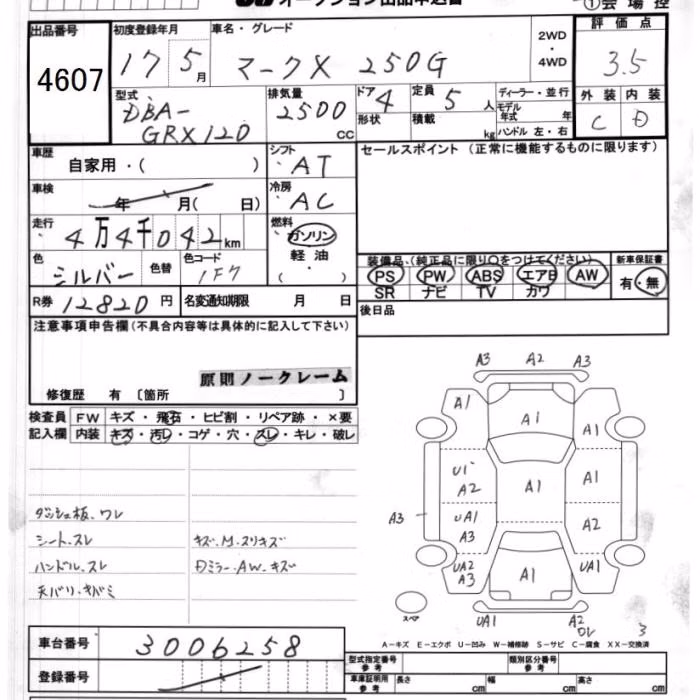 オークション出品申込書
①会場控
出品番号 4607
初度登録年月 17 5月
車名・グレード マークX 250G
2WD・4WD
評価点 3.5
外装 C 内装 D
型式 DBA-GRX120
排気量 2500 CC
ドア 4 形状
定員 5人 積載 kg
ディーラー・並行
モデル年式 年
ハンドル 左・右
車歴 自家用・( )
シフト AT
車検 年 月( 日)
冷房 AC
走行 4万4千042km
燃料 ガソリン 軽油 ・( )
色 シルバー 色替
色コード 1F7
R券 12820円
名変通知期限 月 日
セールスポイント (正常に機能するものに限ります)
装備品(純正品に限り○をつけてください)
PS PW ABS エアB AW
SR ナビ TV カワ
新車保証書 有・無
後日品
注意事項申告欄(不具合内容等は具体的に記入して下さい)
原則ノークレーム
修復歴 有 〔箇所 〕
検査員記入欄
FW キズ・飛石・ヒビ割・リペア跡・×要
内装 キズ・汚レ・コゲ・穴・スレ・キレ・破レ
ダッシュ板、ワレ
シート、スレ
ハンドル、スレ
天バリ・キバミ
キズ、M、スリキズ
Dミラー、AW、キズ
A3 A2 A3
A1 A1 A1
U1 A2 A1 A1
A3 UA1 A3 A2
UA2 A3 A1 UA1
スペア
UA1 A2
3
A-キズ E-エクボ U-凹み W-補修跡 S-サビ C-腐食 XX-交換済
車台番号 3006258
登録番号
型式指定番号 参考
類別区分番号 参考
車庫証明用 参考 長さ cm 幅 cm 高さ cm